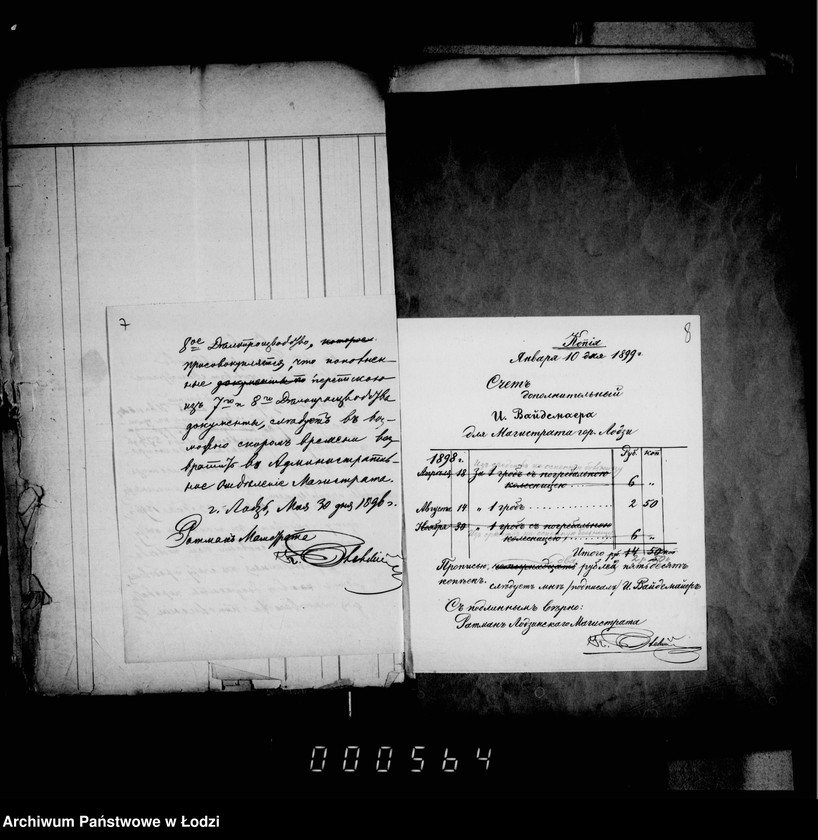 7
8ое Делопроизводство, которое
присовокупляется, что поименован-
ные документы по перепискою
изъ 7го и 8го Делопроизводства
документы, следуетъ въ воз-
можно скоромъ времени воз-
вратить въ Административ-
ное Отделение Магистрата.
г. Лодзь Мая 30 дня 1898 г.
Ратманъ Магистрата
8
Копія
Января 10 дня 1899 г.
Счетъ
дополнительный
И. Вайдемаера
для Магистрата гор. Лодзи
Руб. коп
1898 г.
Апрѣля 18 За 1 гробъ съ погребальною
колесницею 6 "
Августа 14 " 1 гробъ 2 50
Ноября 30 " 1 гробъ съ погребальною
колесницею 6 "
Итого р. 14 50
Прописью: четырнадцать рублей пятьдесятъ
копѣекъ. слѣдуетъ мнѣ /подписалъ/ И. Вайдемайеръ
Съ подлиннымъ вѣрно:
Ратманъ Лодзинскаго Магистрата
000564
Archiwum Państwowe w Łodzi